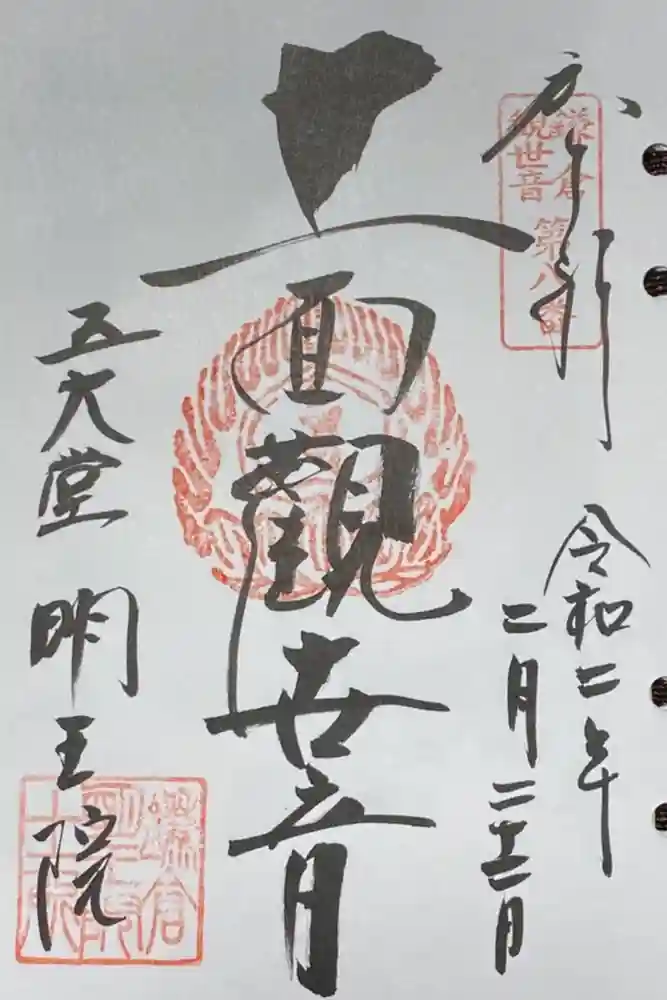 奉拝
鎌倉
観世音
第八番
令和二年
二月二十二日
十一面觀世音
五大堂
明王院